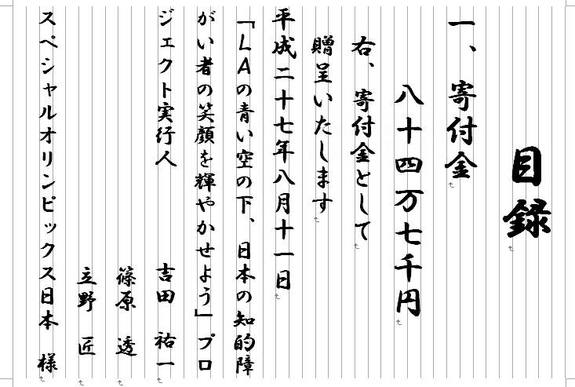 目録
一、寄付金
八十四万七千円
右、寄付金として
贈呈いたします
平成二十七年八月十一日
「ＬＡの青い空の下、日本の知的障
がい者の笑顔を輝やかせよう」プロ
ジェクト実行人　吉田　祐一
篠原　透
立野　匠
スペシャルオリンピックス日本　様